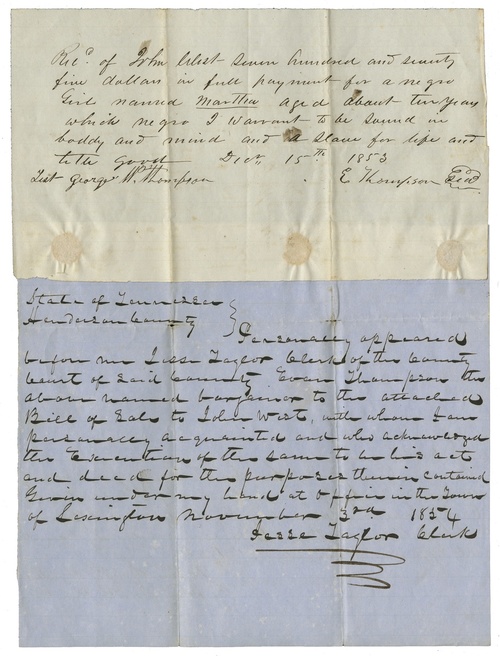 Recd. of John West seven hundred and seventy
five dollars in full payment for a negro
Girl named Martha aged about ten years
which negro I warrant to be sound in
boddy and mind and a slave for life and
title good Decr 15th 1853
Test George W. Thompson E Thompson
State of Tennessee
Henderson County
Personally appeared
before me Jesse Taylor Clerk of the County
Court of Said County Evan Thompson the
above named bargainor to the attached
Bill of Sale to John West, with whom I am
personally acquainted and who acknowledged
the Execution of the same to be his act
and deed for the purposes therein contained
Given under my hand at office in the Town
of Lexington November 3rd 1854
Jesse Taylor Clerk